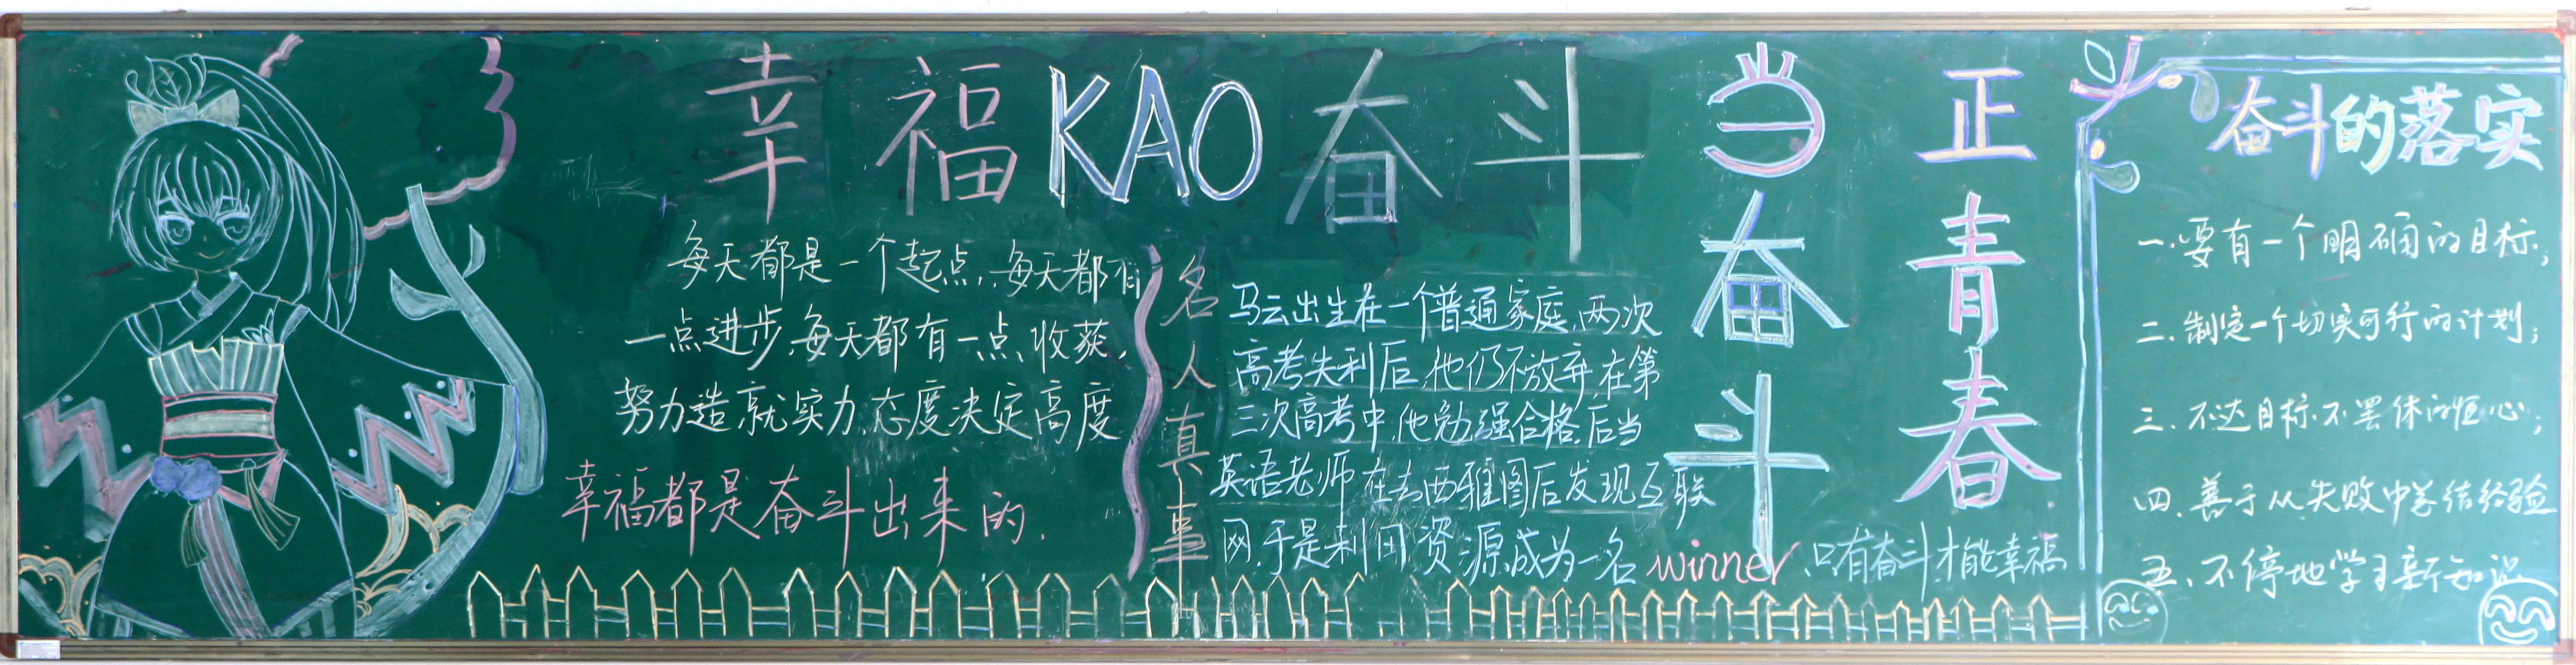 幸福KAO奋斗
每天都是一个起点,每天都有
一点进步,每天都有一点收获,
努力造就实力,态度决定高度
幸福都是奋斗出来的.
名人真事
马云出生在一个普通家庭,两次
高考失利后,他仍不放弃,在第
三次高考中,他勉强合格,后当
英语老师在去西雅图后发现互联
网,于是利用资源成为一名winner,只有奋斗才能幸福
正青春
当奋斗
奋斗的落实
一.要有一个明确的目标;
二.制定一个切实可行的计划;
三.不达目标不罢休的恒心;
四.善于从失败中总结经验
五.不停地学习新知识